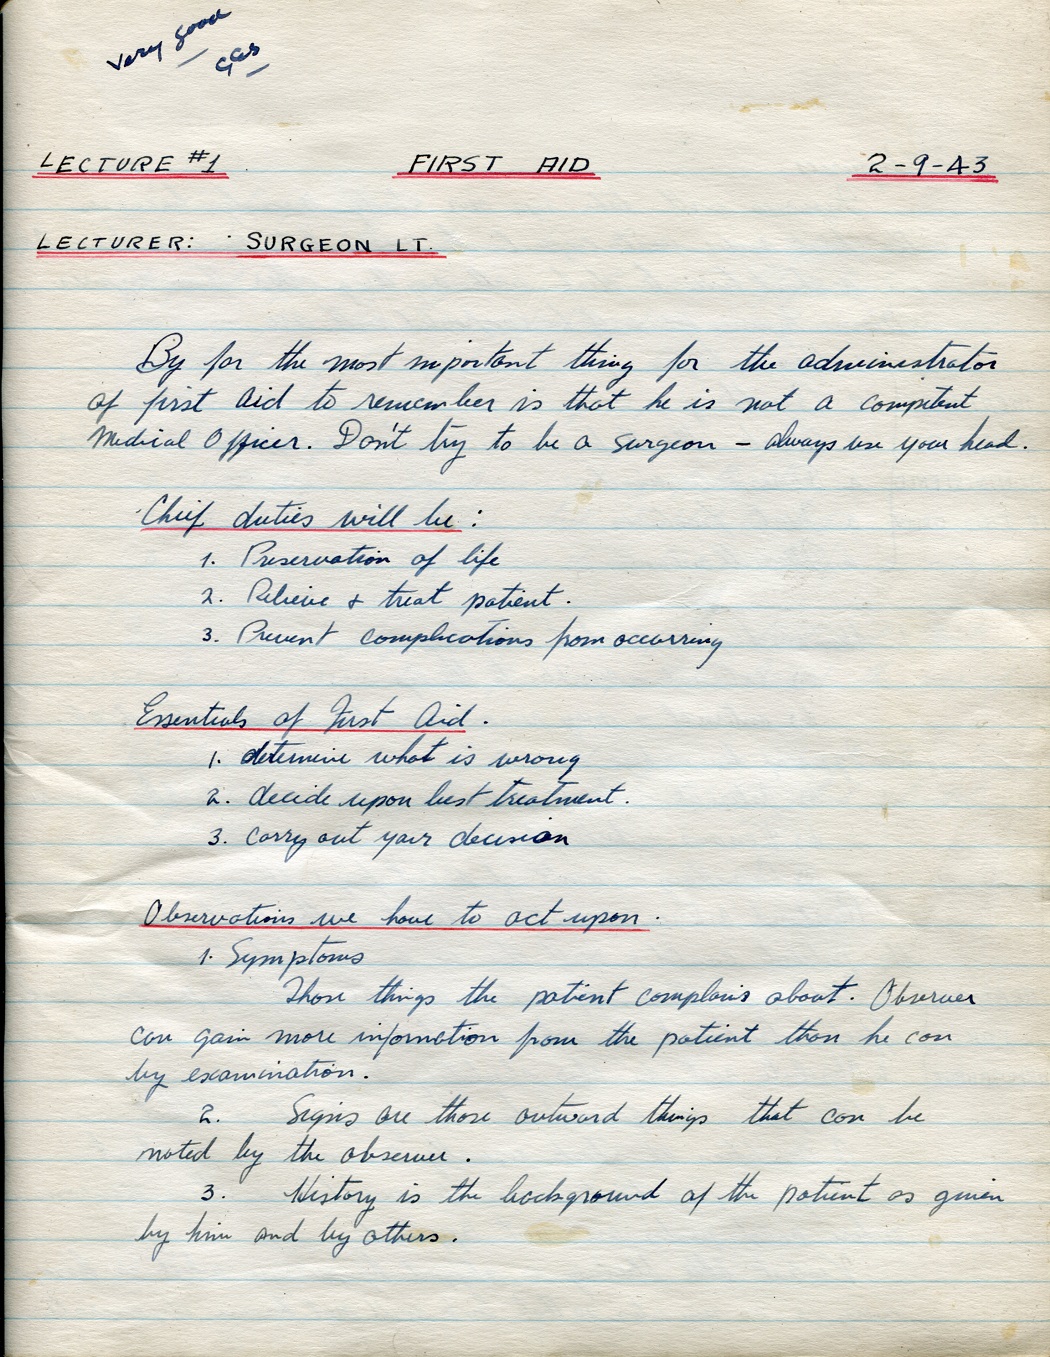 Very good
LECTURE #1 FIRST AID 2-9-43
LECTURER: SURGEON LT.
By far the most important thing for the administrator
of first aid to remember is that he is not a competent
Medical Officer. Don't try to be a surgeon - always use your head.
Chief duties will be:
1. Preservation of life
2. Relieve & treat patient.
3. Prevent complications from occurring
Essentials of First Aid.
1. determine what is wrong
2. decide upon best treatment.
3. carry out your decision
Observations we have to act upon.
1. Symptoms
Those things the patient complains about. Observer
can gain more information from the patient than he can
by examination.
2. Signs are those outward things that can be
noted by the observer.
3. History is the background of the patient as given
by him and by others.